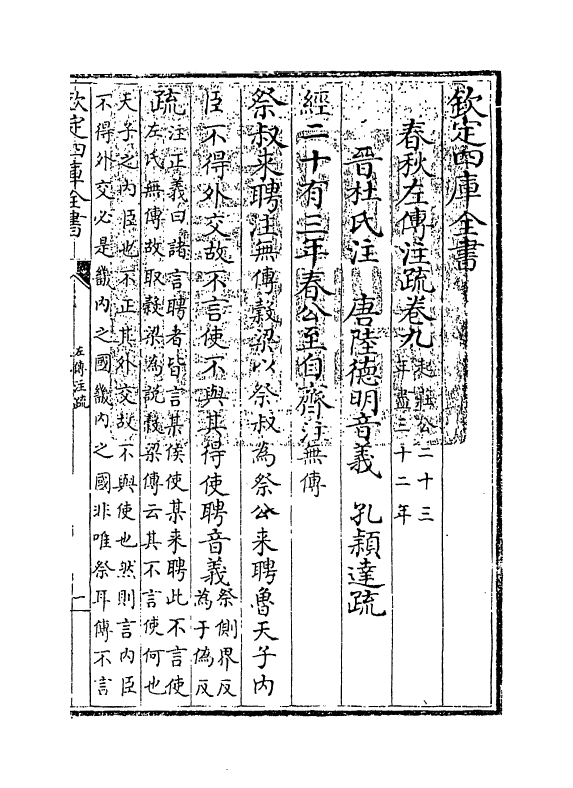 欽定四庫全書
春秋左傳注疏卷九起莊公二十三
年盡三十二年
晉杜氏注　唐陸德明音義　孔穎達疏
經二十有三年春公至自齊注無傳
祭叔來聘注無傳穀梁以祭叔為祭公來聘魯天子内
臣不得外交故不言使不與其得使聘音義祭側界反
為于偽反
疏注正義曰諸言聘者皆言某侯使某來聘此不言使
左氏無傳故取穀梁為説穀梁傳云其不言使何也
天子之内臣也不正其外交故不與使也然則言内臣
不得外交必是畿内之國畿内之國非唯祭耳傳不言
欽定四庫全書
左傳注疏
一